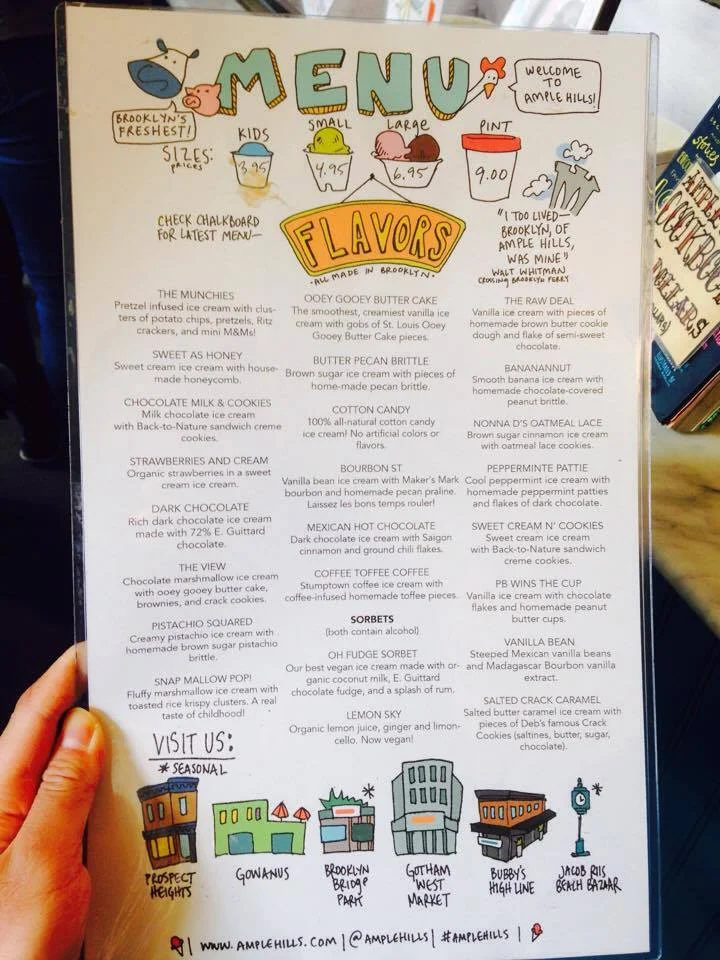 MENU
WELCOME
TO
AMPLE HILLS!
BROOKLYN'S
FRESHEST!
SIZES:
PRICES
KIDS
3.95
SMALL
4.95
Large
6.95
PINT
9.00
CHECK CHALKBOARD
FOR LATEST MENU—
FLAVORS
·ALL MADE IN BROOKLYN·
"I TOO LIVED—
BROOKLYN, OF
AMPLE HILLS,
WAS MINE"
WALT WHITMAN
CROSSING BROOKLYN FERRY
THE MUNCHIES
Pretzel infused ice cream with clus-
ters of potato chips, pretzels, Ritz
crackers, and mini M&Ms!
SWEET AS HONEY
Sweet cream ice cream with house-
made honeycomb.
CHOCOLATE MILK & COOKIES
Milk chocolate ice cream
with Back-to-Nature sandwich creme
cookies.
STRAWBERRIES AND CREAM
Organic strawberries in a sweet
cream ice cream.
DARK CHOCOLATE
Rich dark chocolate ice cream
made with 72% E. Guittard
chocolate.
THE VIEW
Chocolate marshmallow ice cream
with ooey gooey butter cake,
brownies, and crack cookies.
PISTACHIO SQUARED
Creamy pistachio ice cream with
homemade brown sugar pistachio
brittle.
SNAP MALLOW POP!
Fluffy marshmallow ice cream with
toasted rice krispy clusters. A real
taste of childhood!
OOEY GOOEY BUTTER CAKE
The smoothest, creamiest vanilla ice
cream with gobs of St. Louis Ooey
Gooey Butter Cake pieces.
BUTTER PECAN BRITTLE
Brown sugar ice cream with pieces of
home-made pecan brittle.
COTTON CANDY
100% all-natural cotton candy
ice cream! No artificial colors or
flavors.
BOURBON ST
Vanilla bean ice cream with Maker's Mark
bourbon and homemade pecan praline.
Laissez les bons temps rouler!
MEXICAN HOT CHOCOLATE
Dark chocolate ice cream with Saigon
cinnamon and ground chili flakes.
COFFEE TOFFEE COFFEE
Stumptown coffee ice cream with
coffee-infused homemade toffee pieces.
SORBETS
(both contain alcohol)
OH FUDGE SORBET
Our best vegan ice cream made with or-
ganic coconut milk, E. Guittard
chocolate fudge, and a splash of rum.
LEMON SKY
Organic lemon juice, ginger and limon-
cello. Now vegan!
THE RAW DEAL
Vanilla ice cream with pieces of
homemade brown butter cookie
dough and flake of semi-sweet
chocolate.
BANANANNUT
Smooth banana ice cream with
homemade chocolate-covered
peanut brittle.
NONNA D'S OATMEAL LACE
Brown sugar cinnamon ice cream
with oatmeal lace cookies.
PEPPERMINTE PATTIE
Cool peppermint ice cream with
homemade peppermint patties
and flakes of dark chocolate.
SWEET CREAM N' COOKIES
Sweet cream ice cream
with Back-to-Nature sandwich
creme cookies.
PB WINS THE CUP
Vanilla ice cream with chocolate
flakes and homemade peanut
butter cups.
VANILLA BEAN
Steeped Mexican vanilla beans
and Madagascar Bourbon vanilla
extract.
SALTED CRACK CARAMEL
Salted butter caramel ice cream with
pieces of Deb's famous Crack
Cookies (saltines, butter, sugar,
chocolate).
VISIT US:
* SEASONAL
PROSPECT
HEIGHTS
GOWANUS
*
BROOKLYN
BRIDGE
PARK
GOTHAM
WEST
MARKET
BUBBY'S
HIGH LINE
*
JACOB RIIS
BEACH BAZAAR
| WWW.AMPLEHILLS.COM | @AMPLEHILLS | #AMPLEHILLS |
stories
COOKBOO